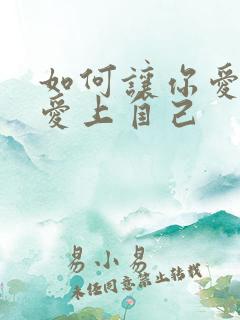 如何讓你愛
愛上自己
易小易
未经同意禁止转载